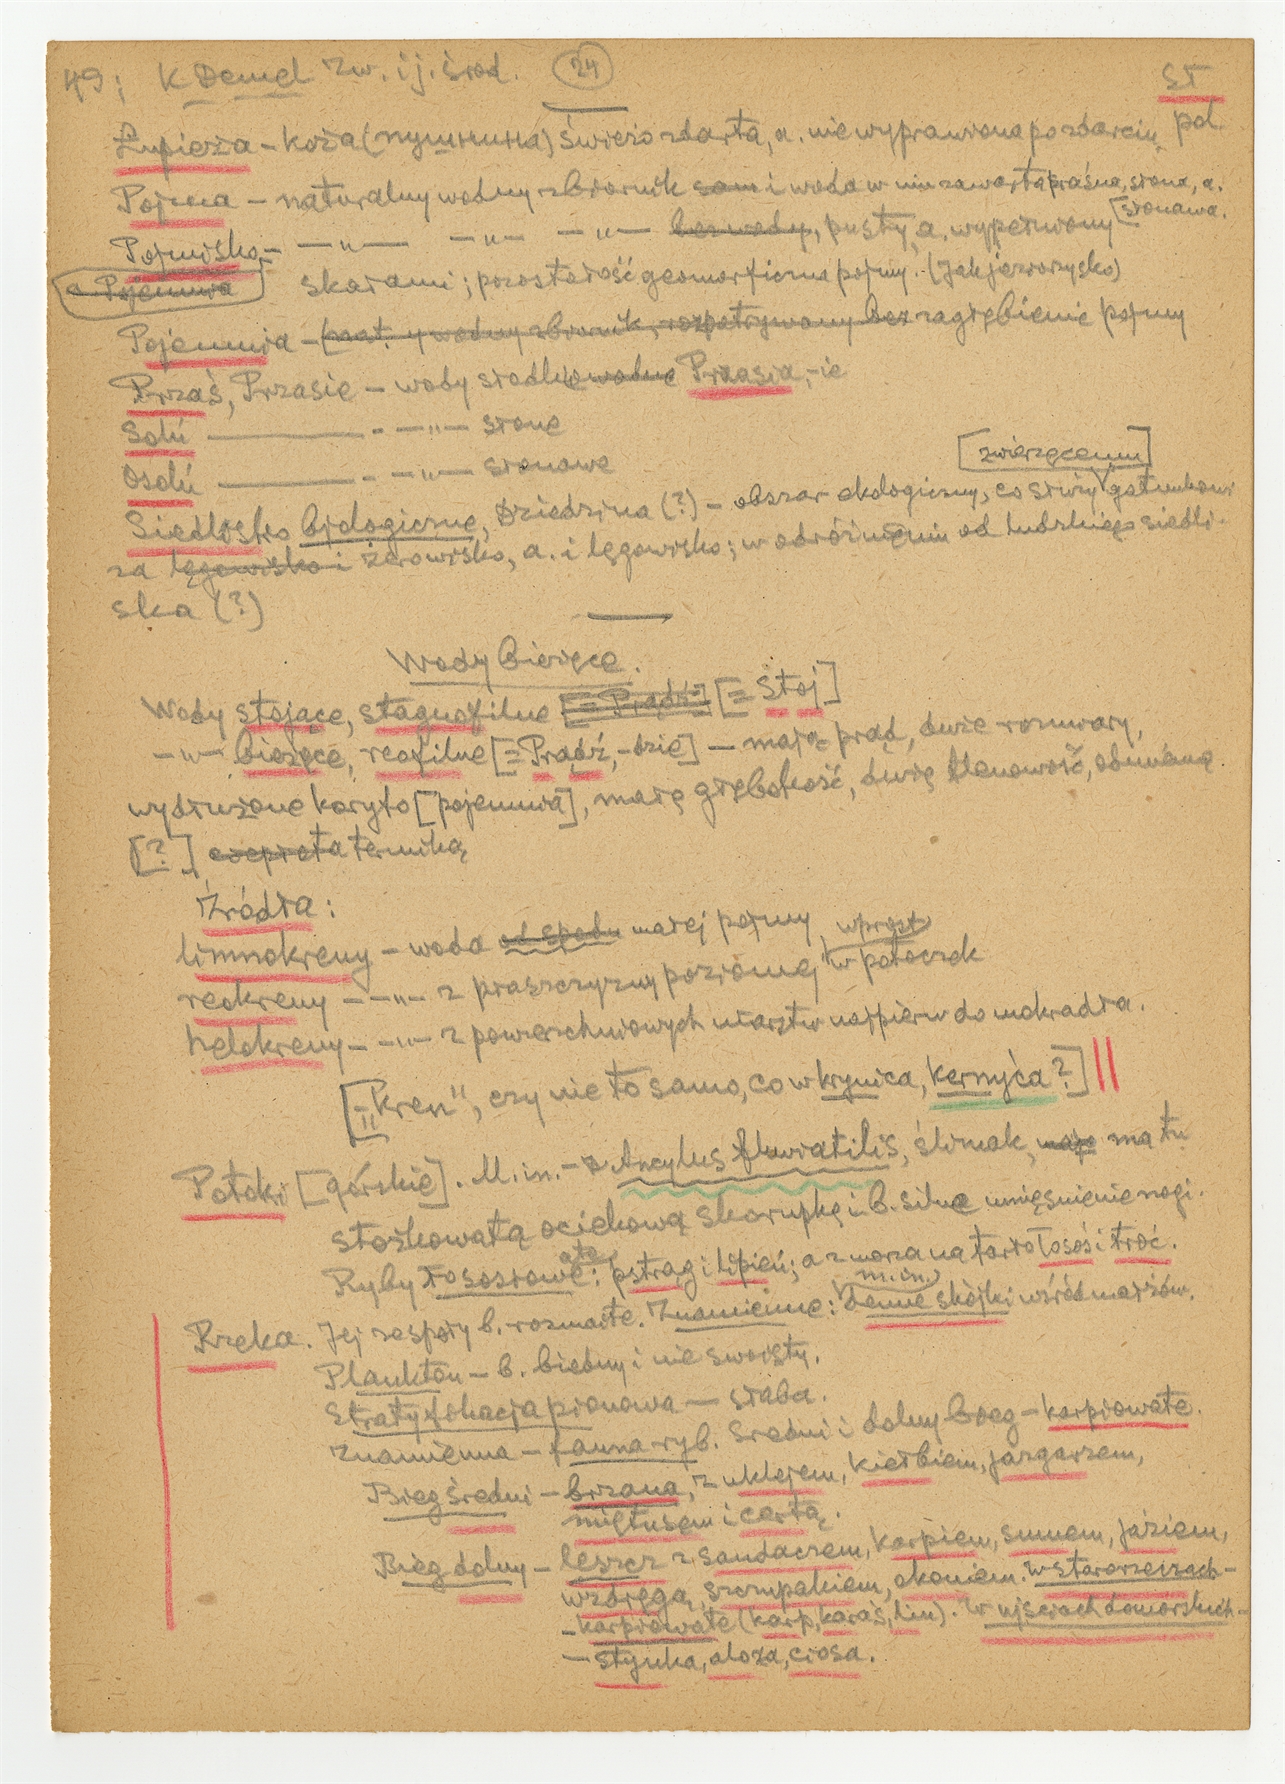 49; K Demel Zw. i j. środ. 24 ST
Łupieża – koża (пушнина) świeżo zdarta, a. nie wyprawiona po zdarciu, pol.
Pojma – naturalny wodny zbiornik sam i woda w nim zawarta praśna, słona, a.
[słonawa.
Pojmisko – —„— —„— —„— bez wody, pusty, a. wypełniony
a Pojemnia] skałami; pozostałość geomorficzna pojmy. (Jak jeziorzysko)
Pojemnia – [nat. wodny zbiornik, rozpatrywany bez zagłębienie pojmy
Przaś, Przasie – wody słodkowodne Przasia, -ie
Sołń ——— - —„— słone
Osołń ——— - —„— słonawe
[zwierzęcemu]
Siedlisko biologiczne, Dziedzina (?) – obszar ekologiczny, co służy gatunkowi
za lęgowisko i żerowisko, a. i lęgowisko; w odróżnieniu od ludzkiego siedli-
ska (?)
Wody bieżące.
Wody stojące, stagnofilne [= Prądź] [= Stoj]
—„— bieżące, reofilne [= Prądź, -dzie] – mają prąd, duże rozmiary,
wydrużone koryto [pojemnia], małą głębokość, dużą tlenowość, odmienną
[?] ciepłota termiką
Źródła:
limnokreny – woda od spodu małej pojmy
wprost
reokreny – —„— z płaszczyzny poziomej w potoczek
helokreny – —„— z powierzchniowych warstw najpierw do mokradła.
[„-kren", czy nie to samo, co w krynica, kernyća?]
Potoki [górskie]. M. in. – Ancylus fluviatilis, ślimak, ma tu
stożkowatą ociekową skorupkę i b. silne umięśnienie nogi.
Ryby łososiowate: pstrąg i lipień; a z morza na tarło łosoś i troć.
m. in.
Rzeka. Jej zespoły b. rozmaite. Znamienne: denne skójki wśród małżów.
Plankton – b. biedny i nie swoisty.
Stratyfikacja pionowa – słaba.
Znamienna – fauna ryb. Średni i dolny bieg – karpiowate.
Bieg średni – brzana, z uklejem, kiełbiem, jazgarzem,
miętusem i certą.
Bieg dolny – leszcz z sandaczem, karpiem, sumem, jaziem,
wzdręgą, szczupakiem, okoniem. W starorzeczach –
– karpiowate (karp, karaś, lin). W ujściach domorskich –
– stynka, aloza, ciosa.